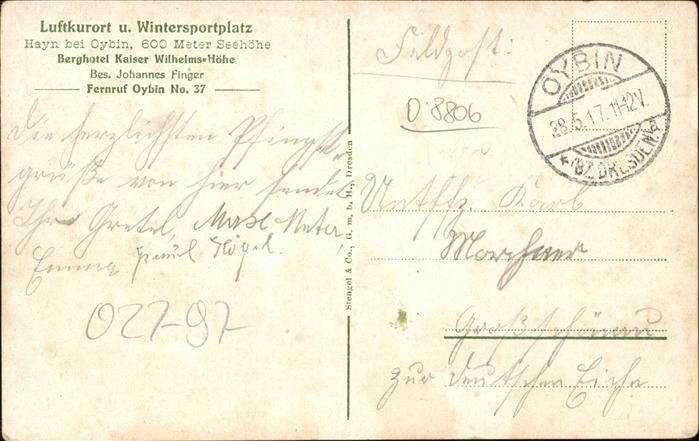 Luftkurort u. Wintersportplatz
Hayn bei Oybin, 600 Meter Seehöhe
Berghotel Kaiser Wilhelms-Höhe
Bes. Johannes Finger
Fernruf Oybin No. 37
Die herzlichsten Pfingst-
grüße von hier sendet
Ihre Gretel,
Emma
027-97
Stengel & Co., G. m. b. H., Dresden
Feldpost:
D 8806
OYBIN
28.5.17.11-12V.
*(BZ.DRESDEN)a
Utffz. Karl
Großschönau
zur deutschen Eiche